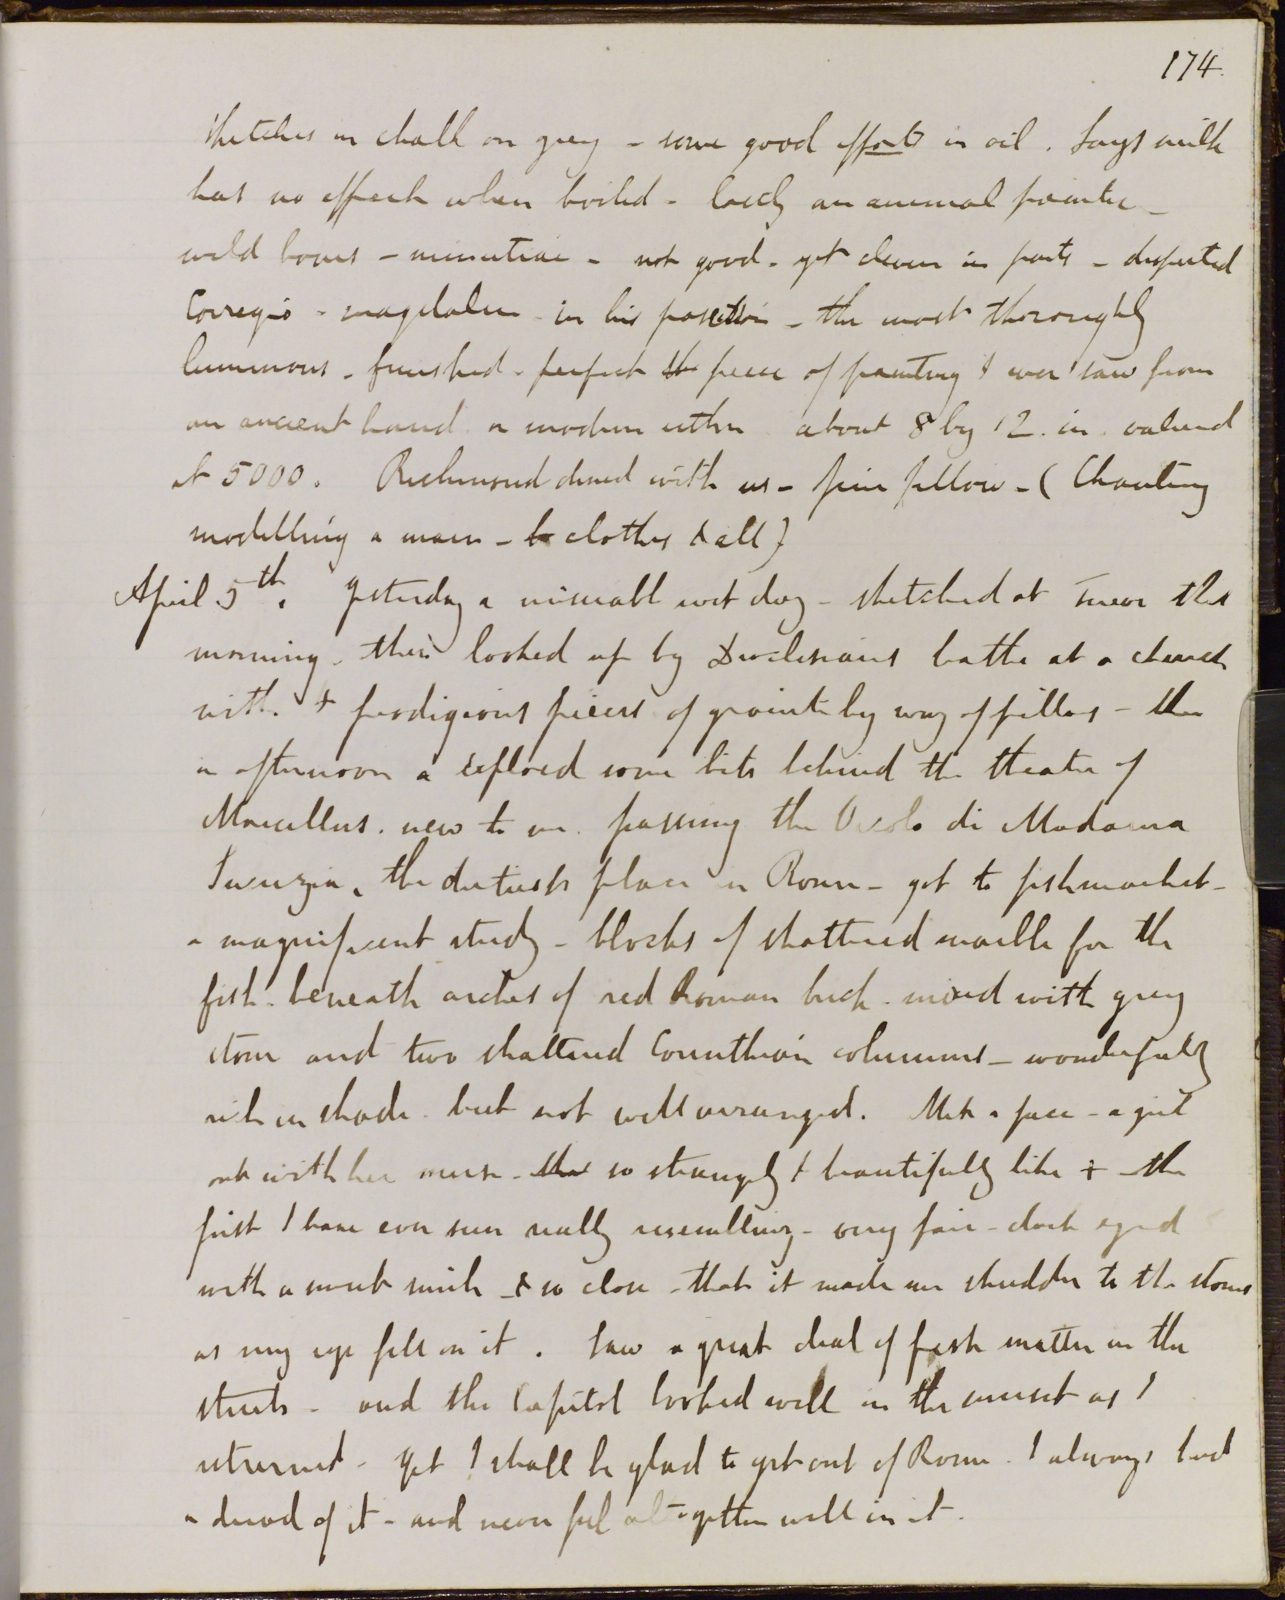 174.
sketches in chalk on grey - some good efforts in oil. Says milk
has no effect when boiled - lastly an animal painter -
wild boars - minutiae - not good - yet clever in parts - disputed
Corregio - magdalen - in his possession - the most thoroughly
luminous - finished - perfect piece of painting I ever saw from
an ancient hand or modern either about 8 by 12. in. valued
at 5000. Richmond dined with us - fine fellow - (Chantrey
modelling a man - clothes & all)
April 5th. Yesterday a miserable wet day - sketched at this
morning - then looked up by Dioclesians baths at a church
with + prodigious pieces of granite by way of pillars - the
in afternoon a explored some bits behind the theatre of
Marcellus. new to me. passing the Vicolo di Madama
Lucrezia, the dirtiest place in Rome - got to fishmarket -
a magnificent study - blocks of shattered marble for the
fish - beneath arches of red Roman brick - mixed with grey
stone and two shattered Corinthian columns - wonderfully
rich in shade - but not well arranged. Met a face - a girl
out with her nurse - so strangely & beautifully like + - the
first I have ever seen really resembling - very fair - dark eyed
with a sweet smile - & so close - that it made me shudder to the stones
as my eye fell on it. Saw a great deal of fresh matter in the
streets - and the Capitol looked well in the sunset as I
returned - yet I shall be glad to get out of Rome. I always had
a dread of it - and never feel altogether well in it.